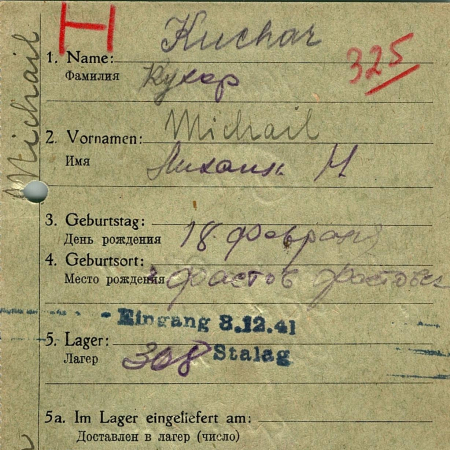 H
Kuchar
1. Name:
325
Фамилия Кухар
Michail
2. Vornamen: Michail
Имя Михаил Н
3. Geburtstag:
День рождения 18 февраля
4. Geburtsort:
Место рождения г Фастов Фастовск
Eingang 8.12.41
5. Lager:
Лагер 308 Stalag
5a. Im Lager eingeliefert am:
Доставлен в лагер (число)